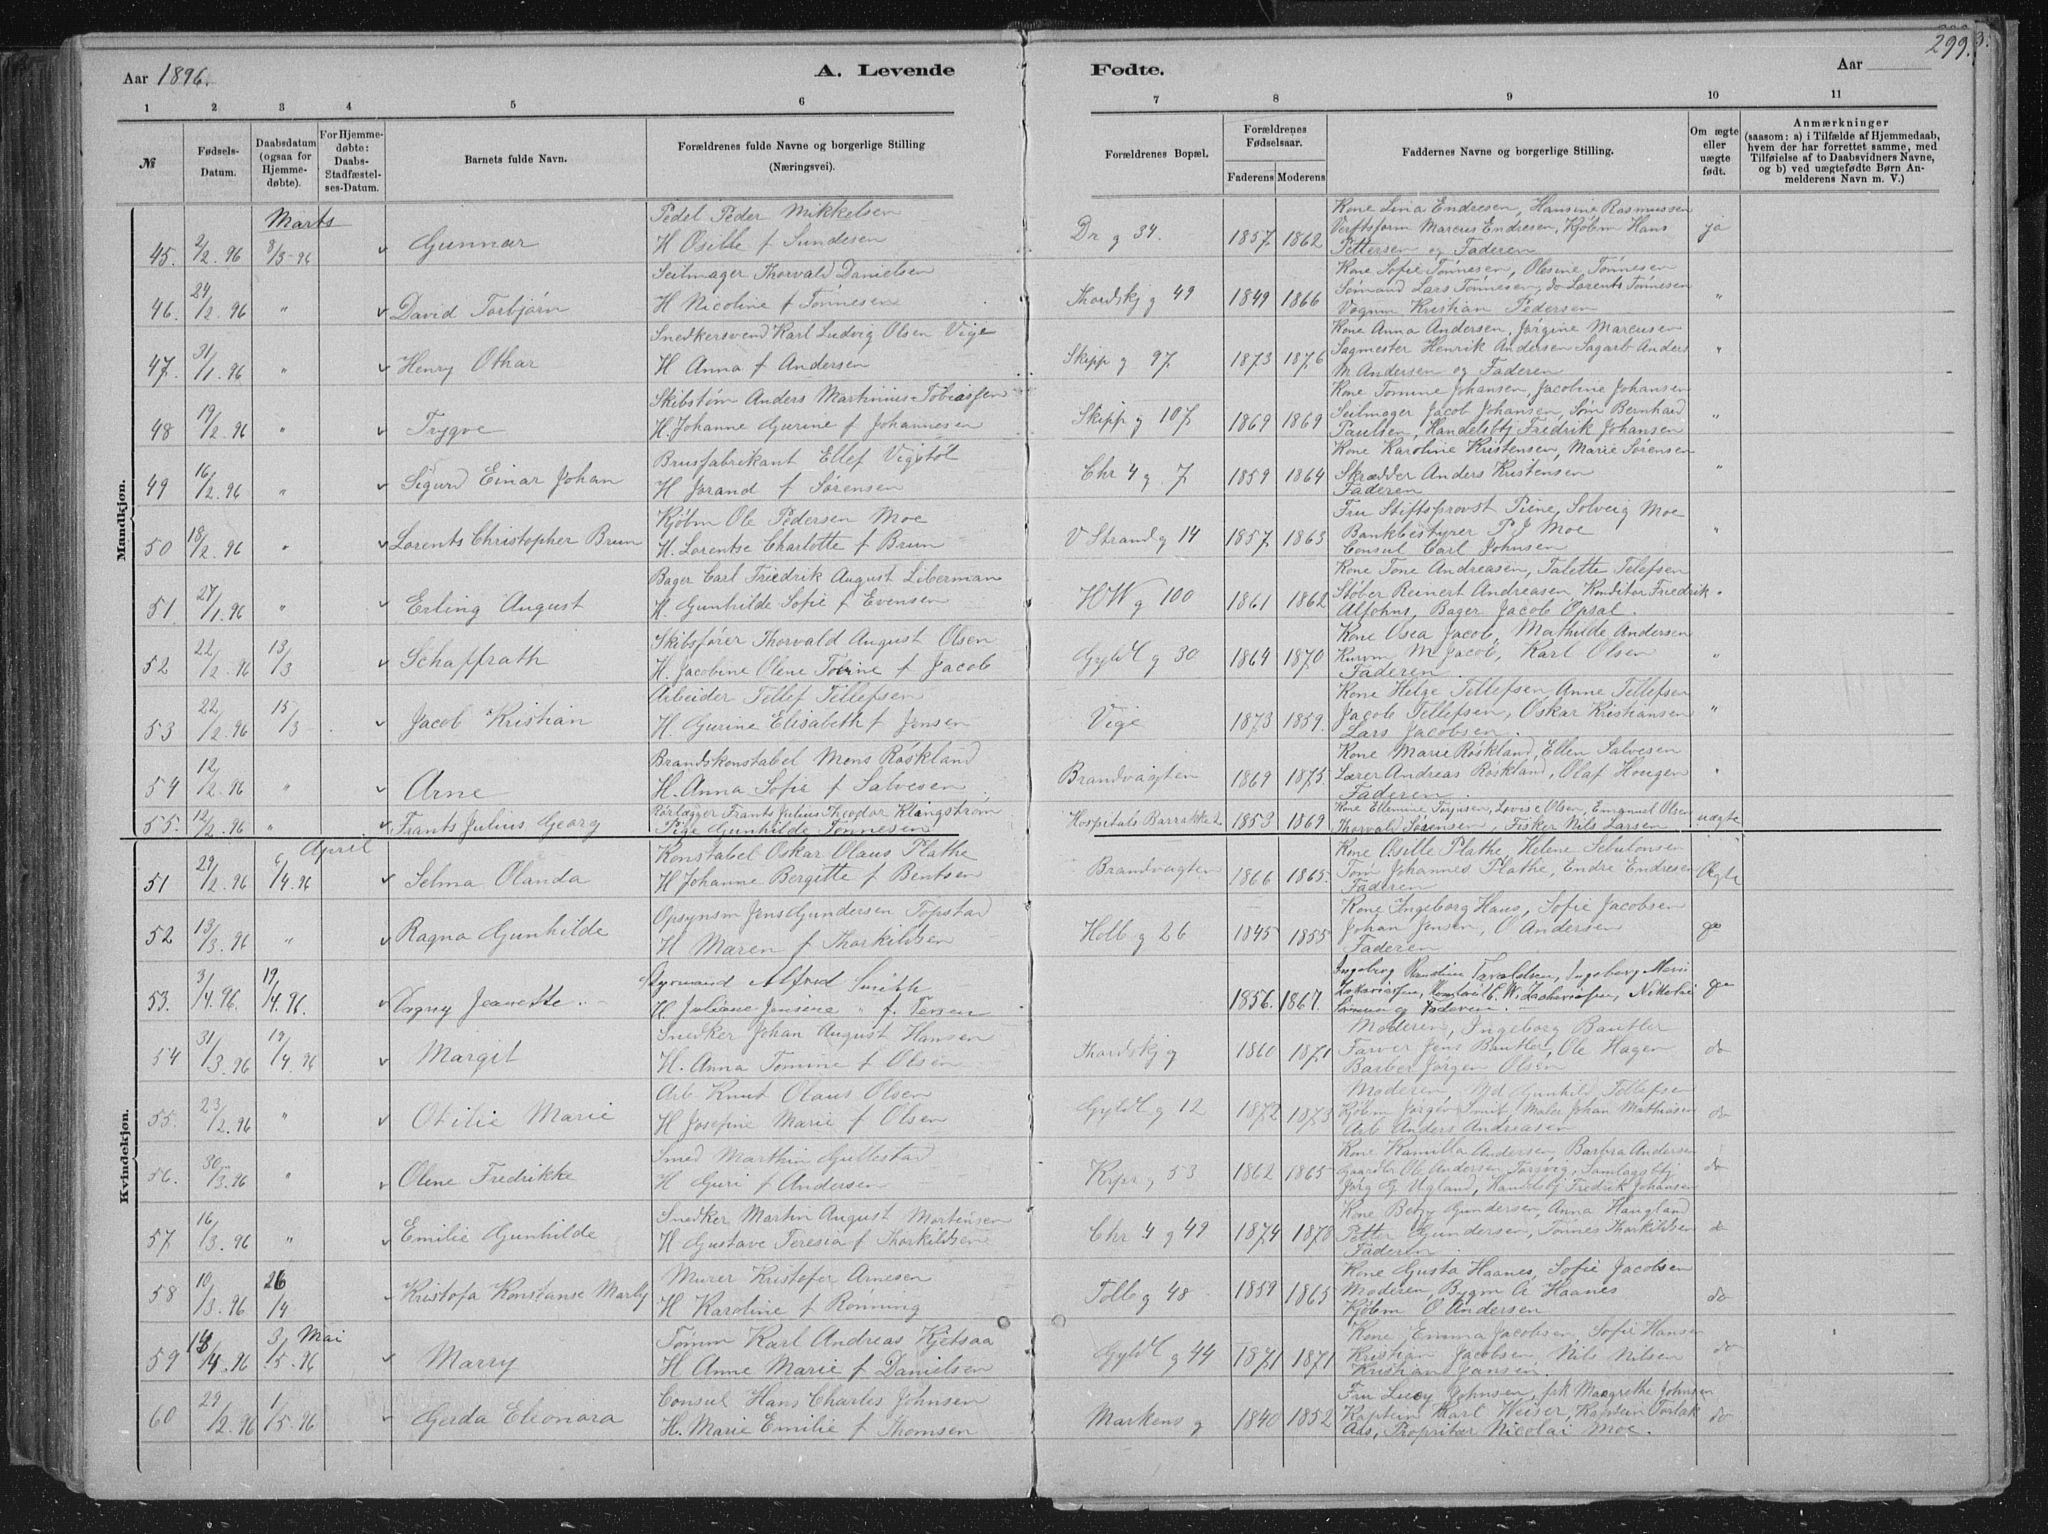 Aar 1896.
A. Levende
Fødte.
Aar
299.
1 2 3 4 5 6 7 8 9 10 11
№
Fødsels-Datum.
Daabsdatum (ogsaa for Hjemme-døbte).
For Hjemme-døbte: Daabs-Stadfæstel-ses-Datum.
Barnets fulde Navn.
Forældrenes fulde Navne og borgerlige Stilling (Næringsvei).
Forældrenes Bopæl.
Forældrenes Fødselsaar.
Faderens Moderens
Faddernes Navne og borgerlige Stilling.
Om ægte eller uægte født.
Anmærkninger (saasom: a) i Tilfælde af Hjemmedaab, hvem der har forrettet samme, med Tilføielse af to Daabsvidners Navne, og b) ved uægtefødte Børn An-melderens Navn m. V.)
Mandkjøn.
Marts
Pedel Peder Mikkelsen
Kone Lina Endresen, Hansine Rasmussen
45. 2/2. 96 8/3-96 Gunnar H Osille f Sundesen Dr g 34. 1857 1862 Verftsform Marcus Endresen, Kjøbm Hans ja
Pettersen og Faderen
Seilmager Thorvald Danielsen
Kone Sofie Tønnesen, Olesine Tønnesen
46. 24/2. 96 " David Torbjørn H Nicoline f Tønnesen Thordskj g 49 1849 1866 Sømand Lars Tønnesen, do Lorents Tønnesen "
Vognm Kristian Pedersen
Snedkersvend Karl Ludvig Olsen Vige
Kone Anna Andersen, Jørgine Marcusen
47. 31/1. 96 " Henry Othar H Anna f Andersen Skipp g 97 1873 1876 Sagmester Henrik Andersen Sagarb Anders "
M Andersen og Faderen
Skibstøm Anders Martinius Tobiassen
Kone Tomine Johansen, Jacobine Johansen
48 19/2. 96 " Trygve H. Johanne Gurine f Johannesen Skipp g 107 1869 1869 Seilmager Jacob Johansen, Søm Bernhard "
Paulsen, Handelsbtj Fredrik Johansen
Brusfabrikant Ellef Vigstøl
Kone Karoline Kristensen, Marie Sørensen
49 16/2. 96 " Sigurd Einar Johan H Jorand f Sørensen Chr 4 g 7 1859 1864 Skrædder Anders Kristensen "
Faderen
Kjøbm Ole Pedersen Moe
Fru Stiftsprovst Piene, Solveig Moe
50 18/2. 96 " Lorents Christopher Brun H. Lorentse Charlotte f Brun V Strand g 14 1857 1863 Bankbestyrer P J Moe "
Consul Carl Johnsen
Bager Carl Friedrik August Liberman
Kone Tone Andreasen, Talette Telefsen
51. 27/1. 96 " Erling August H. Gunhilde Sofie f Evensen HW g 100 1861 1862 Støber Reinert Andreasen, Konditor Friedrik "
Alfohns, Bager Jacob Opsal.
Skibsfører Thorvald August Olsen
Kone Osea Jacob, Mathilde Andersen
52 22/2. 96 13/3 Schaffrath H. Jacobine Olene Tomine f Jacob Gyldl g 30 1864 1870 Kurvm M Jacob, Karl Olsen "
Faderen
Arbeider Tellef Tellefsen
Kone Helge Tellefsen, Anne Tellefsen
53 22/2. 96 15/3 Jacob Kristian H Gurine Elisabeth f Jensen Vige 1873 1859. Jacob Tellefsen, Oskar Kristiansen "
Lars Jacobsen.
Brandskonstabel Mons Røskland
Kone Marie Røskland, Ellen Salvesen
54 12/2. 96 " Arne H. Anna Sofie f Salvesen Brandvagten 1869 1875. Lærer Andreas Røskland, Olaf Hougen "
Faderen
Rørlægger Frants Julius Theodor Klangstrøm
Kone Ellemine Torjusen, Lovise Olsen, Emanuel Olsen
55. 12/2. 96 " Frants Julius Georg Pige Gunhilde Tønnesen Hospitals Barrakke 2 1853 1869 Thorvald Sørensen, Fisker Nils Larsen uægte
Kvindekjøn.
April
Konstabel Oskar Olaus Plathe
Kone Osille Plathe, Helene Sibulonsen
51 29/2. 96 6/4. 96 Selma Olanda H Johanne Bergitte f Bentsen Brandvagten 1866 1865. Tom Johannes Plathe, Endre Endresen Ægte
Faderen
Opsynsm Jens Gundersen Topstad
Kone Ingeborg Haus, Sofie Jacobsen
52 13/3. 96 " Ragna Gunhilde H Maren f Thorkildsen Holb g 26 1845 1855 Johan Jensen, O Andersen
Faderen
Styrmand Alfred Smith
53. 3/4. 96. 19/4. 96. Dagny Jeanette H. Juliane Jensine f. Tersen 1856. 1867.
Snedker Johan August Hansen
Moderen, Ingeborg Bautler
54 31/3. 96 19/4. 96 Margit H. Anna Tomine f Olsen Thordskj g 1860 1871 Farver Jens Bautler, Ole Hagen do
Barber Jørgen Olsen
Arb Knut Olaus Olsen
Moderen, Gunhild Tellefsen
55. 23/2. 96 " Otilie Marie H Josefine Marie f Olsen Gyldl g 12 1872 1873 Kjøbm Jørgen Smit, Maler Johan Mathiasen do
Arb Anders Andreasen
Smed Marthin Gullestad
Kone Kamilla Andersen, Barbra Andersen
56. 30/3. 96 " Olene Fredrikke H Guri f Andersen Krpr g 53 1862 1865 Gaardbr Ole Andersen Torsvig, Samlagsbtj do
Jørg G Ugland, Handelsbtj Fredrik Johansen
Snedker Martin August Mortensen
Kone Betzy Gundersen, Anna Haugland
57 16/3. 96 " Emilie Gunhilde H Gustave Teresia f Thorkildsen Chr 4 g 49 1874 1878 Petter Gundersen, Tønnes Thorkildsen do
Faderen
Murer Kristofer Arnesen
Kone Gusta Haanes, Sofie Jacobsen
58 10/3. 96 26/4 Kristofa Konstanse Marly H Karoline f Rønning Tolb g 48 1859 1865 Moderen, Bygm A Haanes do
Kjøbm O Andersen
Mai
Tømm Karl Andreas Kjetsaa
Kone Emma Jacobsen, Sofie Hansen
59 13/4. 96 3/5. 96 Marry H Anne Marie f Danielsen Gyldl g 44 1871 1871 Kristian Jacobsen, Nils Nilsen do
Kristian Jansen
Consul Hans Charles Johnsen
Fru Lucy Johnsen, frk Magrethe Johnsen
60 29/2. 96 1/5. 96 Gerda Eleonora H. Marie Emilie f Thomsen Markens g 1840 1852 Kaptein Karl Weiser, Kaptein Torlak do
Ads, Propritær Nicolai Moe.